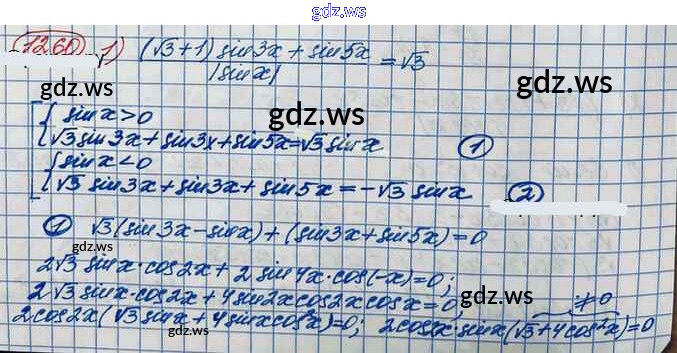 gdz.ws
1260 1) (√3+1) sin3x + sin5x / |sinx| = √3
gdz.ws gdz.ws
[ { sinx>0
gdz.ws
√3sin3x+sin3x+sin5x=√3sinx (1)
{ sinx<0
√3 sin3x+sin3x+sin5x=-√3 sinx (2)
(1) √3(sin3x-sinx)+(sin3x+sin5x)=0
gdz.ws gdz.ws
2√3 sinx·cos2x+2sin4x·cos(-x)=0;
2√3sinx·cos2x+4sin2xcos2xcosx=0; ≠0
2cos2x(√3sinx+4sinxcos²x)=0; 2cos2x·sinx(√3+4cos²x)=0
gdz.ws